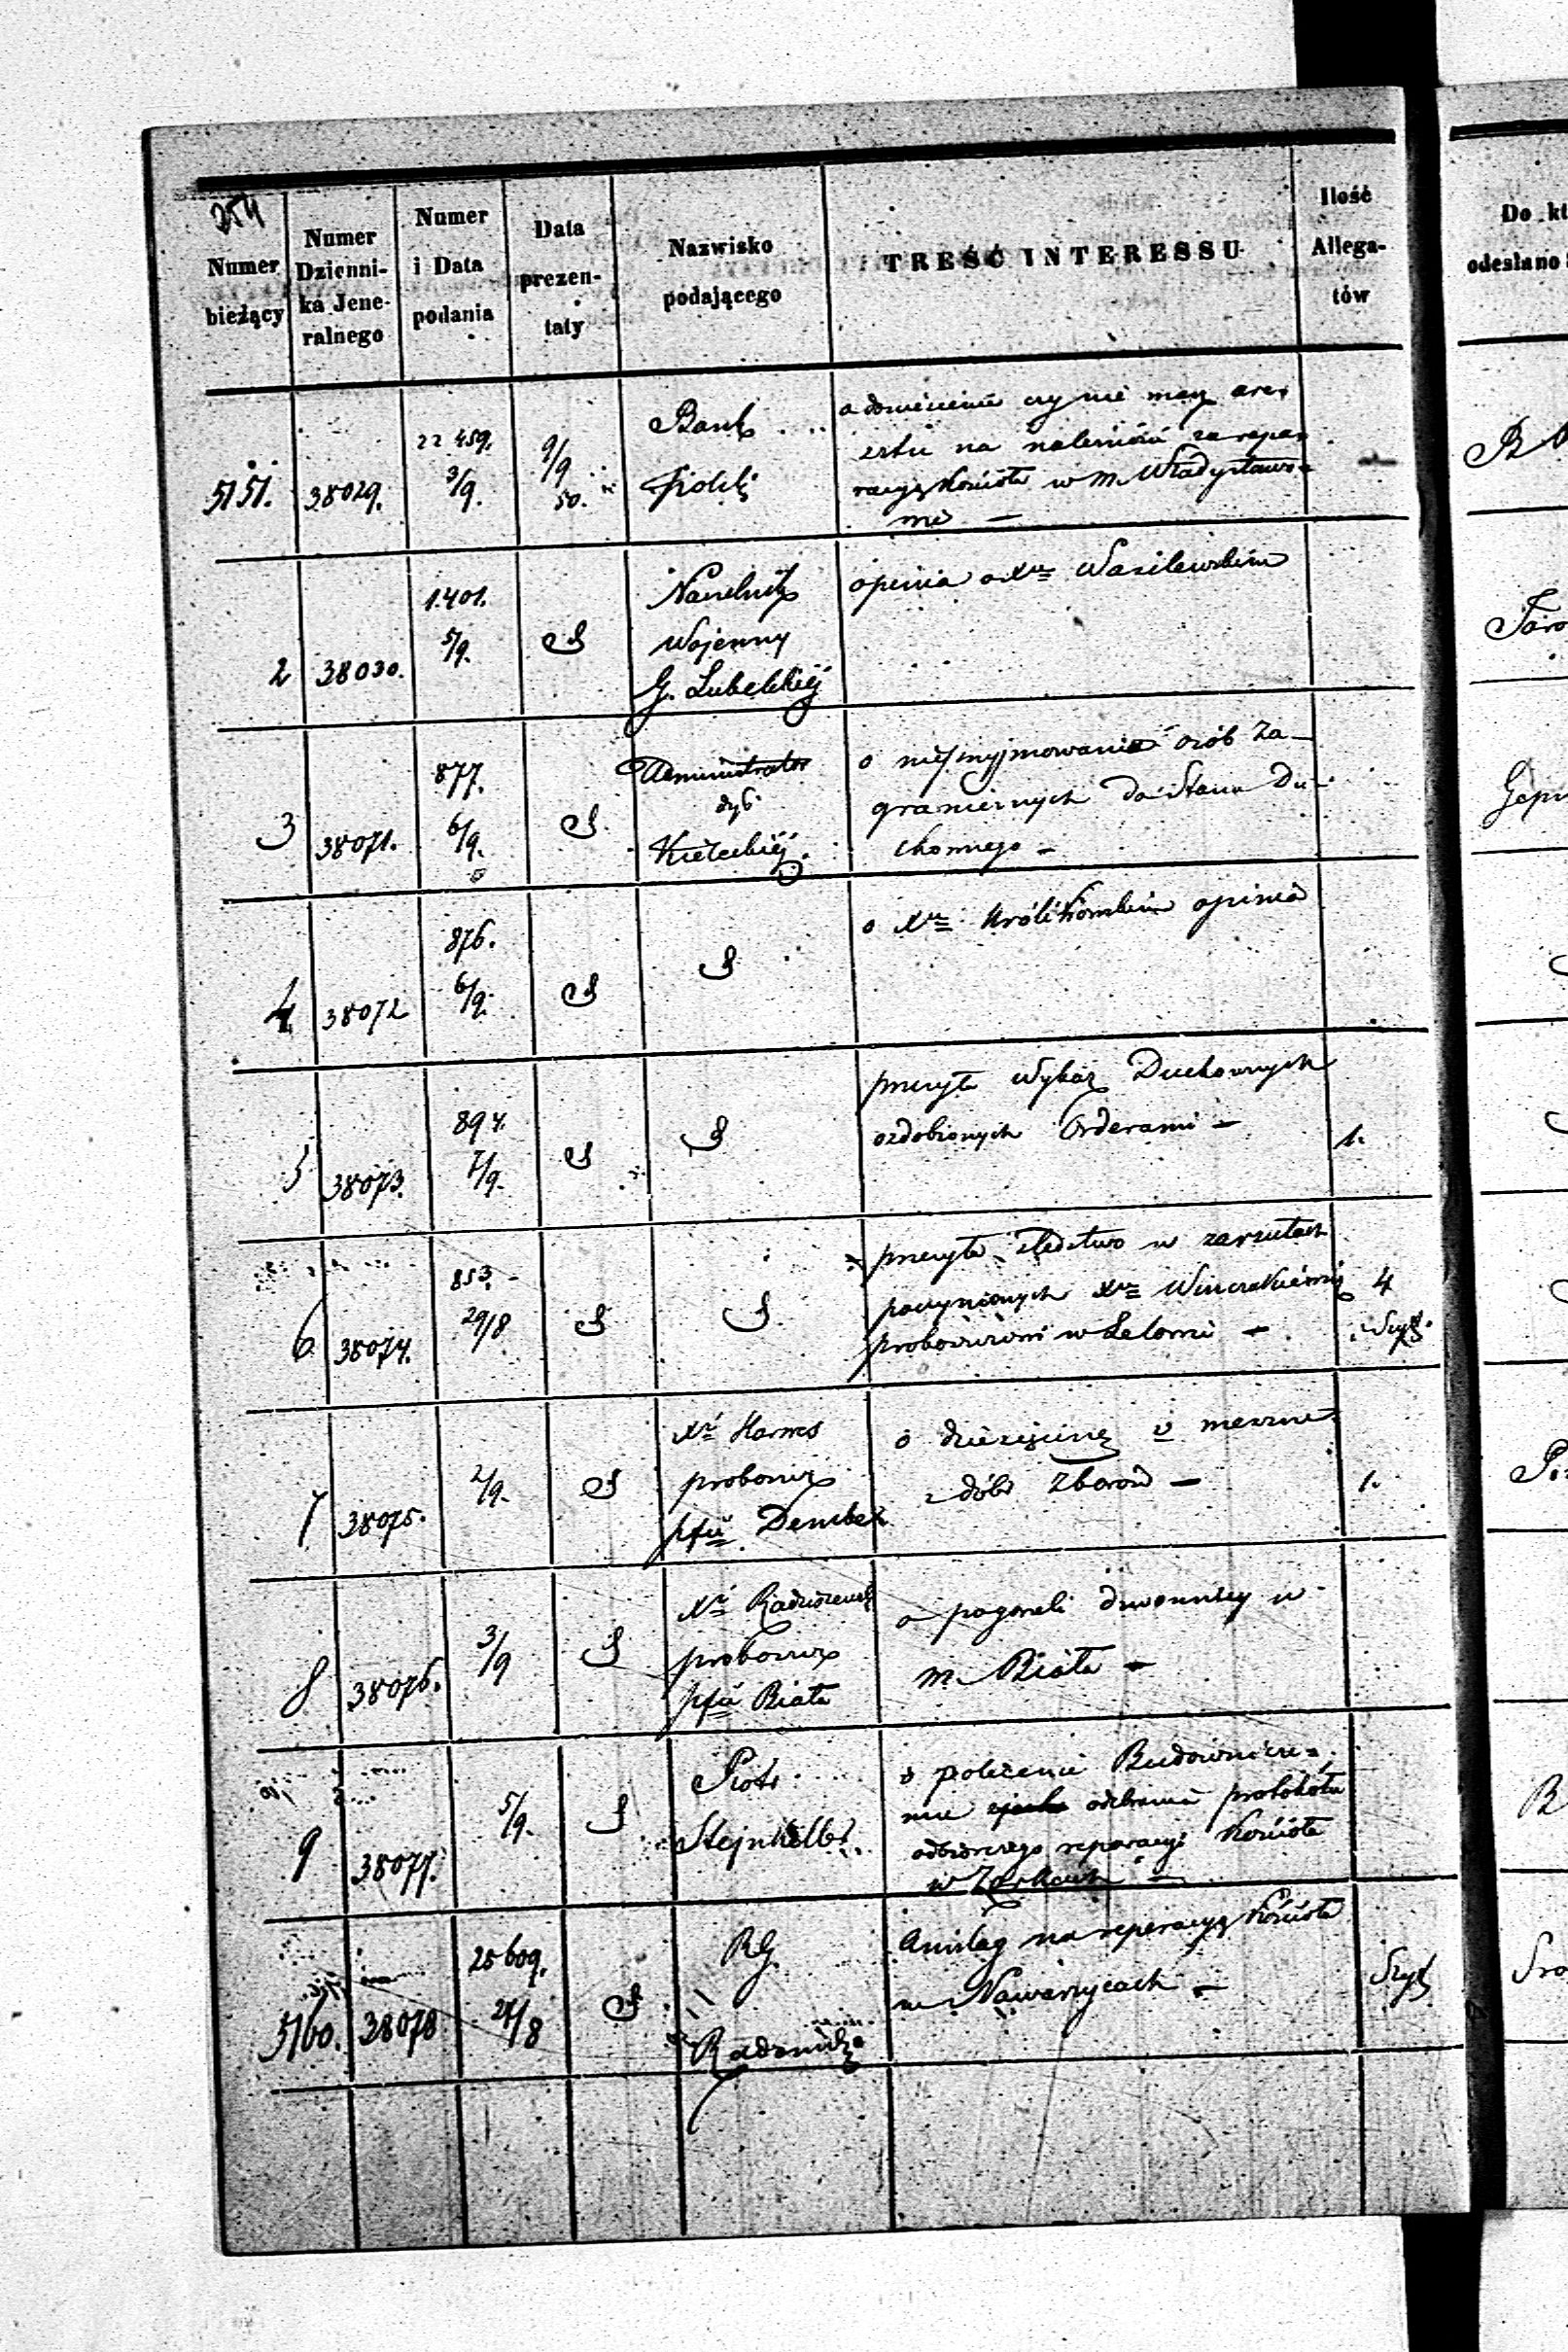 254
Numer bieżący
Numer Dzienni-ka Jene-ralnego
Numer i Data podania
Data prezen-taty
Nazwisko podającego
TREŚĆ INTERESSU
Ilość Allega-tów
Do kt
odesłano
5151. 38029. 22459. 3/9. 9/9 50. Bank Polski
o doniesienie czy nie mają are-
sztu na należność za repa-
racyą kościoła w m. Władysławo-
wie —
2 38030. 1401. 5/9. Naczelnik
Wojenny
G. Lubelskiej
opinia o Xu Wasilewskim
3 38071. 877. 6/9. Administrator
dyec
Kieleckiej.
o nieprzyjmowanie osób Za-
granicznych do Stanu Du-
chownego —
4 38072 876. 6/9.
o Xu Królikowskim opinia
5 38073. 894. 7/9.
przesyła Wykaz Duchownych
ozdobionych Orderami — 1.
6 38074. 853. 29/8
przesyła śledztwo w zarzutach
poczynionych Xu
proboszczowi w Lelowie — 4
Szyt
7 38075. 2/9. X Harres
proboszcz
pfii
o dziesięcinę
z dóbr Zborów — 1.
8 38076. 3/9 X
proboszcz
pfii Biała
o pogorzeli dzwonnicy w
m. Biała —
9 38077. 5/9. Piotr
Stejnkeller
o polecenie Budownicze-
mu odebrania protokółu
odbiorczego reparacyi kościoła
w Żarkach —
5160. 38078 25609. 24/8 RG.
Radomski
Anszlag na reperacyą kościoła
w Nawarzycach — Szyt